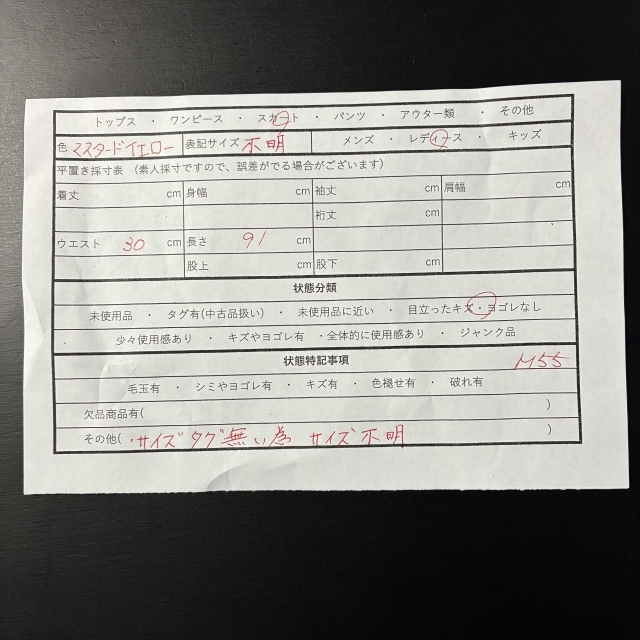 トップス ・ ワンピース ・ スカート ・ パンツ ・ アウター類 ・ その他
色 マスタードイエロー 表記サイズ 不明 メンズ ・ レディース ・ キッズ
平置き採寸表 (素人採寸ですので、誤差がでる場合がございます)
着丈 cm 身幅 cm 袖丈 cm 肩幅 cm
裄丈 cm
ウエスト 30 cm 長さ 91 cm
股上 cm 股下 cm
状態分類
未使用品 ・ タグ有(中古品扱い) ・ 未使用品に近い ・ 目立ったキズ・ヨゴレなし
少々使用感あり ・ キズやヨゴレ有 ・全体的に使用感あり ・ ジャンク品
状態特記事項 M55
毛玉有 ・ シミやヨゴレ有 ・ キズ有 ・ 色褪せ有 ・ 破れ有
欠品商品有( )
その他( ・サイズタグ無い為 サイズ不明 )